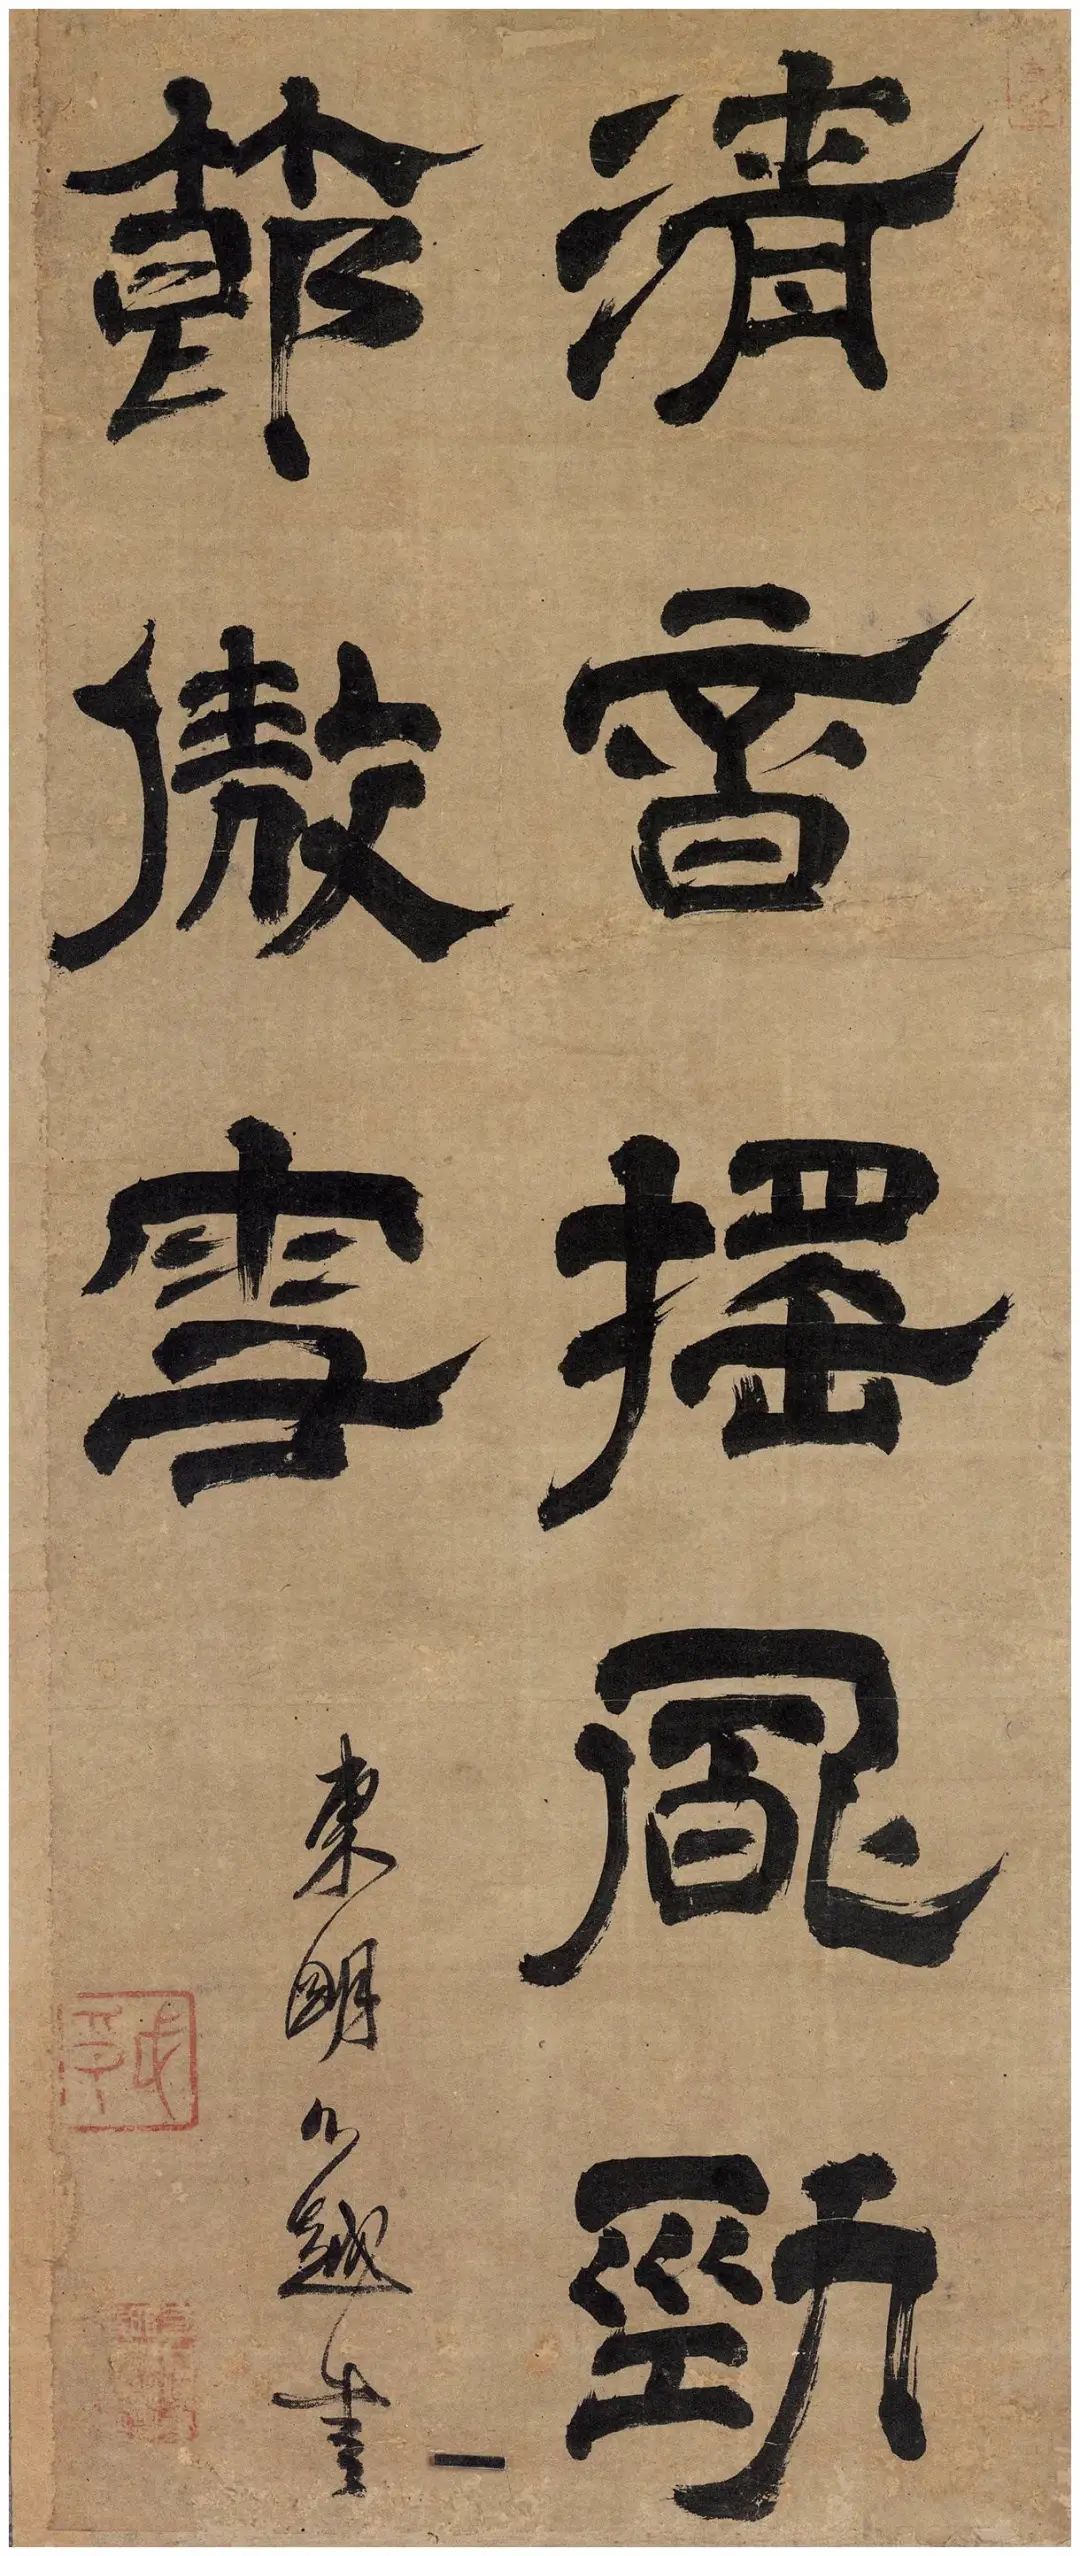 清音搖風勁
節傲雪
東明越書